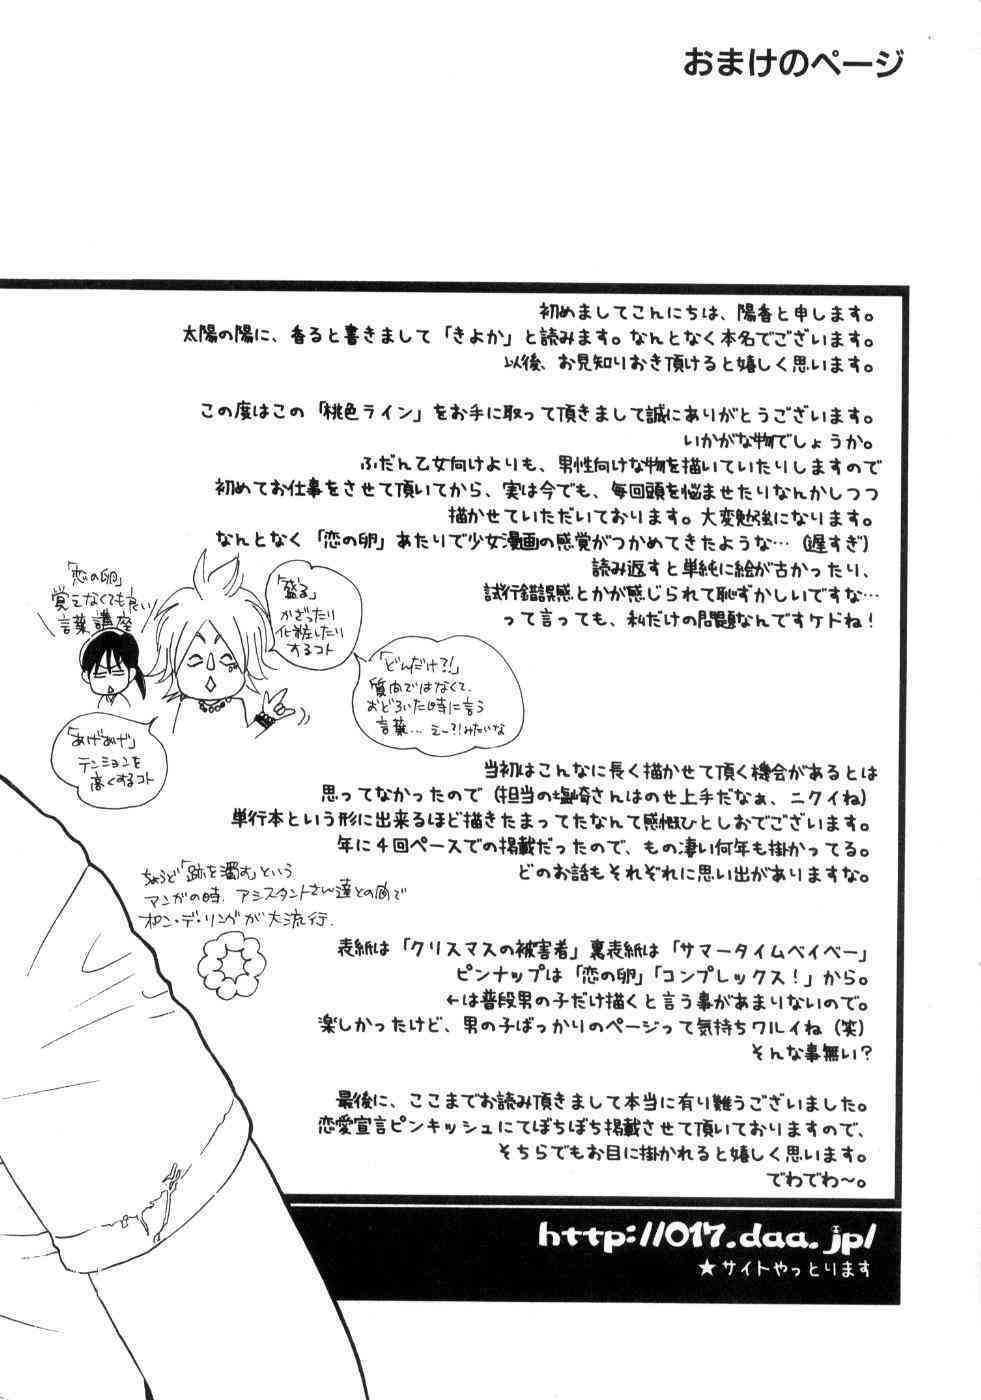 おまけのページ
初めましてこんにちは、陽香と申します。
太陽の陽に、香ると書きまして「きよか」と読みます。なんとなく本名でございます。
以後、お見知りおき頂けると嬉しく思います。
この度はこの「桃色ライン」をお手に取って頂きまして誠にありがとうございます。
いかがな物でしょうか。
ふだん乙女向けよりも、男性向けな物を描いていたりしますので
初めてお仕事をさせて頂いてから、実は今でも、毎回頭を悩ませたりなんかしつつ
描かせていただいております。大変勉強になります。
なんとなく「恋の卵」あたりで少女漫画の感覚がつかめてきたような…（遅すぎ）
読み返すと単純に絵が古かったり、
試行錯誤感とかが感じられて恥ずかしいですな…
って言っても、私だけの問題なんですケドね！
「恋の卵」
覚えなくても良い
言葉講座
「盛る」
かざったり
化粧したり
するコト
「どんだけ?!」
質向ではなくて、
おどろいた時に言う
言葉… えー?!みたいな
「あげあげ」
テンションを
高くするコト
当初はこんなに長く描かせて頂く機会があるとは
思ってなかったので（担当の塩崎さんはのせ上手だなぁ、ニクイね）
単行本という形に出来るほど描きたまってたなんて感慨ひとしおでございます。
年に4回ペースでの掲載だったので、もの凄い何年も掛かってる。
どのお話もそれぞれに思い出がありますな。
ちょうど「跡を濁す」という
マンガの時、アシスタントさん達との間で
ポン・デ・リングが大流行.
表紙は「クリスマスの被害者」裏表紙は「サマータイムベイベー」
ピンナップは「恋の卵」「コンプレックス！」から。
←は普段男の子だけ描くと言う事があまりないので。
楽しかったけど、男の子ばっかりのページって気持ちワルイね（笑）
そんな事無い？
最後に、ここまでお読み頂きまして本当に有り難うございました。
恋愛宣言ピンキッシュにてぼちぼち掲載させて頂いておりますので、
そちらでもお目に掛かれると嬉しく思います。
でわでわ〜。
http://017.daa.jp/
★サイトやっとります